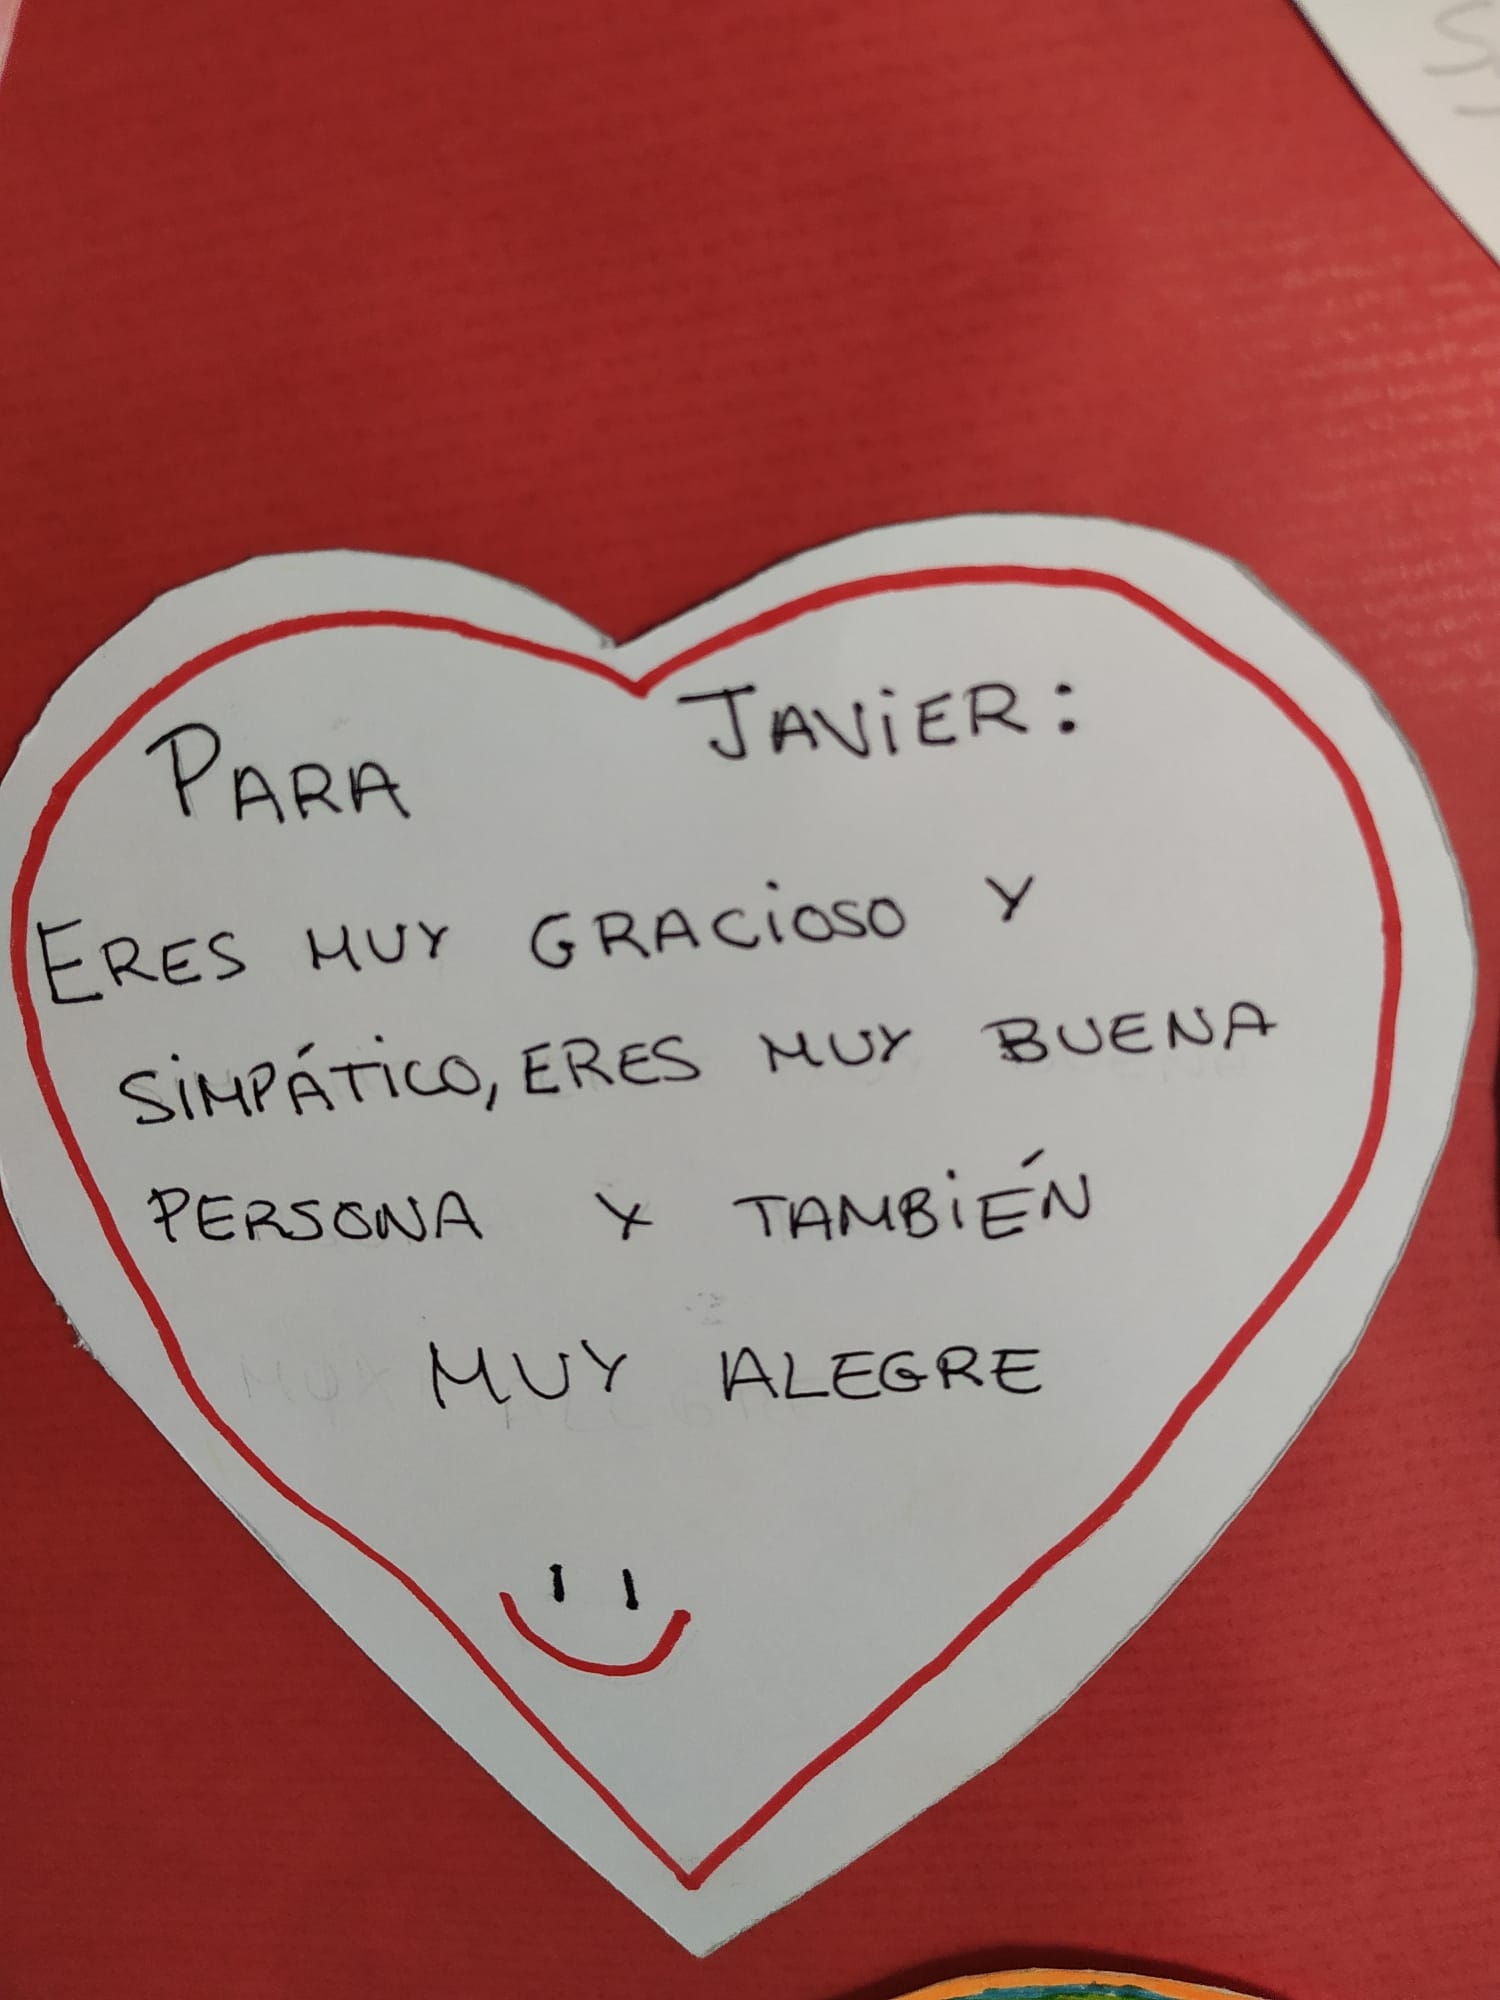 PARA JAVIER:
ERES MUY GRACIOSO Y
SIMPÁTICO, ERES MUY BUENA
PERSONA Y TAMBIÉN
MUY ALEGRE